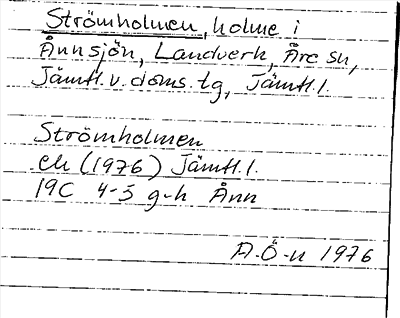 Strömholmen, holme i
Ånnsjön, Landverk, Åre sn,
Jämtl. v. doms. tg, Jämtl. l.
Strömholmen
ek (1976) Jämtl. l.
19C 4-5 g-h Ånn
A.Ö-n 1976